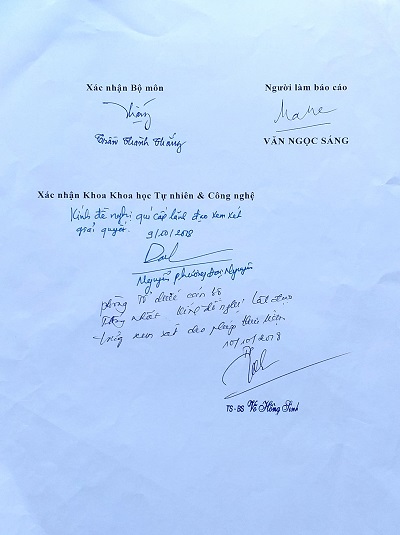 Xác nhận Bộ môn
Người làm báo cáo
Thắng
Trần Thành Thắng
VĂN NGỌC SÁNG
Xác nhận Khoa Khoa học Tự nhiên & Công nghệ
Kính đề nghị quí cấp lãnh đạo xem xét
giải quyết.
9/10/2018
Nguyễn Phương Đại Nguyên
phòng Tổ chức cán bộ
kính đề nghị lãnh đạo
trường xem xét cho phép thực hiện
10/10/2018
TS-BS Võ Hồng Sinh